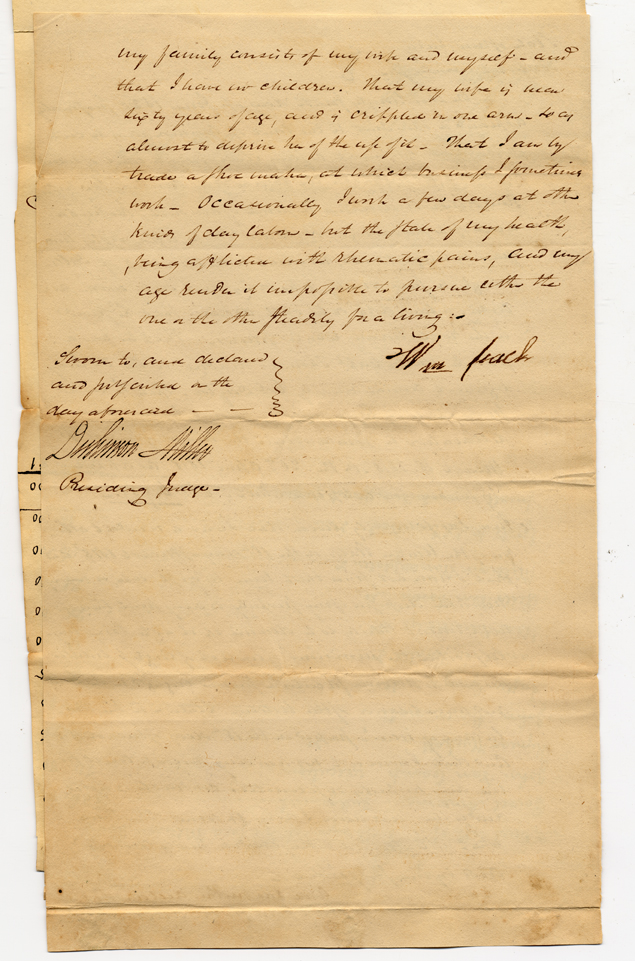 my family consists of my wife and myself - and
that I have no children. That my wife is near
sixty years of age, and is crippled in one arm - so as
almost to deprive her of the use of it - That I am by
trade a shoe maker, at which business I sometimes
work - Occasionally I work a few days at other
kinds of day labor - but the state of my health,
being afflicted with rhematic pains, and my
age render it impossible to pursue either the
one or the other steadily for a living:-
Wm
Sworn to, and declared
and presented on the
day aforesaid - -
Dickinson Miller
Presiding Judge -